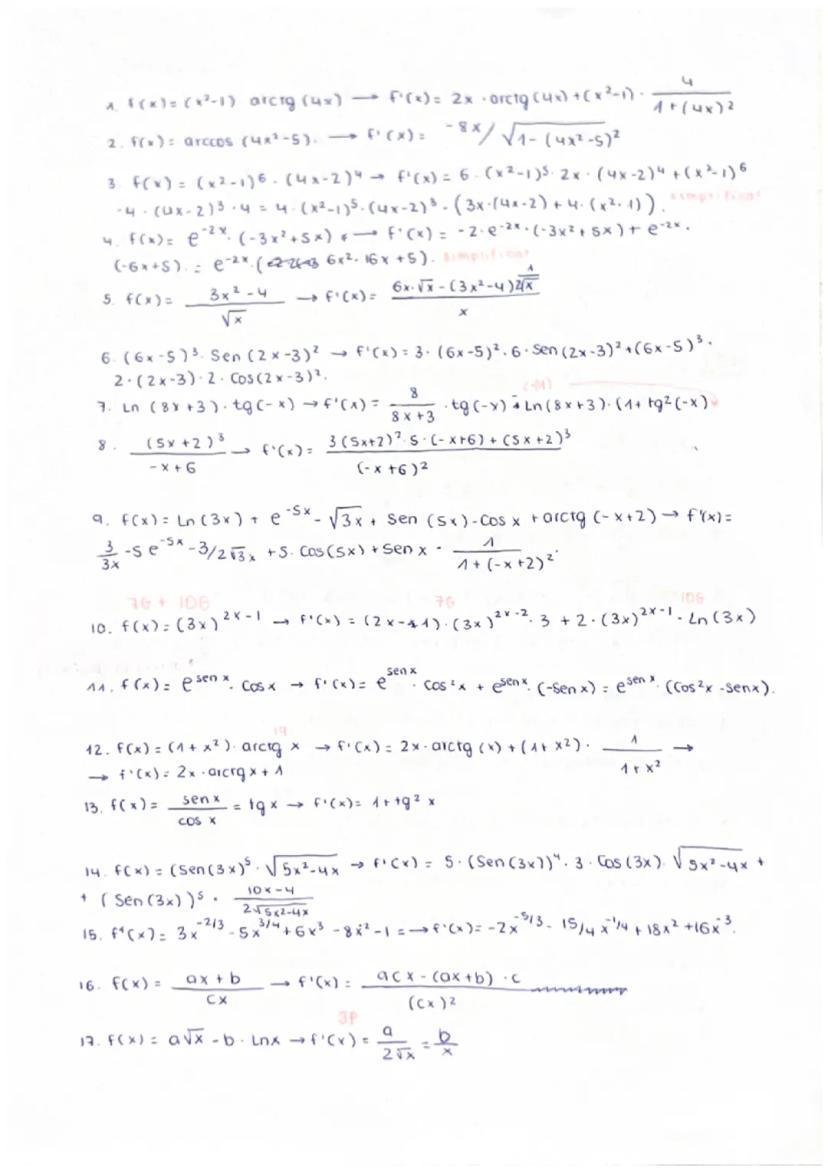 1. f(x) = (x²-1) arctg (4x) → f'(x) = 2x · arctg (4x) + (x²-1) · 4/(1+(4x)²)
2. f(x) = arccos (4x²-5). → f'(x) = -8x/√(1-(4x²-5)²)
3. f(x) = (x²-1)⁶ · (4x-2)⁴ → f'(x) = 6 · (x²-1)⁵ · 2x · (4x-2)⁴ + (x²-1)⁶
·4 · (4x-2)³ · 4 = 4 · (x²-1)⁵ · (4x-2)³ · (3x·(4x-2) + 4·(x²-1)). simplificat
4. f(x) = e^(-2x) · (-3x²+5x) → f'(x) = -2 · e^(-2x) · (-3x²+5x) + e^(-2x) ·
(-6x+5). = e^(-2x) · (6x²-16x+5). simplificat
5. f(x) = (3x²-4)/√x → f'(x) = (6x·√x - (3x²-4) 1/(2√x))/x
6. (6x-5)³ · Sen (2x-3)² → f'(x) = 3 · (6x-5)² · 6 · Sen (2x-3)² + (6x-5)³ ·
2 · (2x-3) · 2 · Cos (2x-3)².
(-1)
7. Ln (8x+3) · tg (-x) → f'(x) = 8/(8x+3) · tg (-x) + Ln (8x+3) · (1+tg² (-x)
8. (5x+2)³/(-x+6) → f'(x) = (3(5x+2)² · 5 · (-x+6) + (5x+2)³)/(-x+6)²
9. f(x) = Ln (3x) + e^(-5x) - √3x + Sen (5x) - Cos x + arctg (-x+2) → f'(x) =
3/3x - 5e^(-5x) - 3/2√3x + 5 · Cos (5x) + Sen x - 1/(1+(-x+2)²).
7G + 10G 7G 10G
10. f(x) = (3x)^(2x-1) → f'(x) = (2x-1) · (3x)^(2x-2) · 3 + 2 · (3x)^(2x-1) · Ln (3x)
11. f(x) = e^(sen x) · Cos x → f'(x) = e^(sen x) · Cos²x + e^(sen x) · (-Sen x) = e^(sen x) · ((Cos²x - Senx).
19
12. f(x) = (1+x²) · arctg x → f'(x) = 2x · arctg (x) + (1+x²) · 1/(1+x²) →
→ f'(x) = 2x · arctg x + 1
13. f(x) = sen x/cos x = tg x → f'(x) = 1+tg² x
14. f(x) = (Sen (3x)⁵ · √(5x²-4x) → f'(x) = 5 · (Sen (3x))⁴ · 3 · Cos (3x) · √(5x²-4x) +
+ (Sen (3x))⁵ · (10x-4)/(2√(5x²-4x))
15. f'(x) = 3x^(-2/3) - 5x^(3/4) + 6x³ - 8x^(-2) - 1 = → f'(x) = -2x^(-5/3) - 15/4 x^(-1/4) + 18x² + 16x^(-3).
16. f(x) = (ax+b)/cx → f'(x) = (acx - (ax+b) · c)/(cx)²
3P
17. f(x) = a√x - b · Lnx → f'(x) = a/(2√x) = b/x